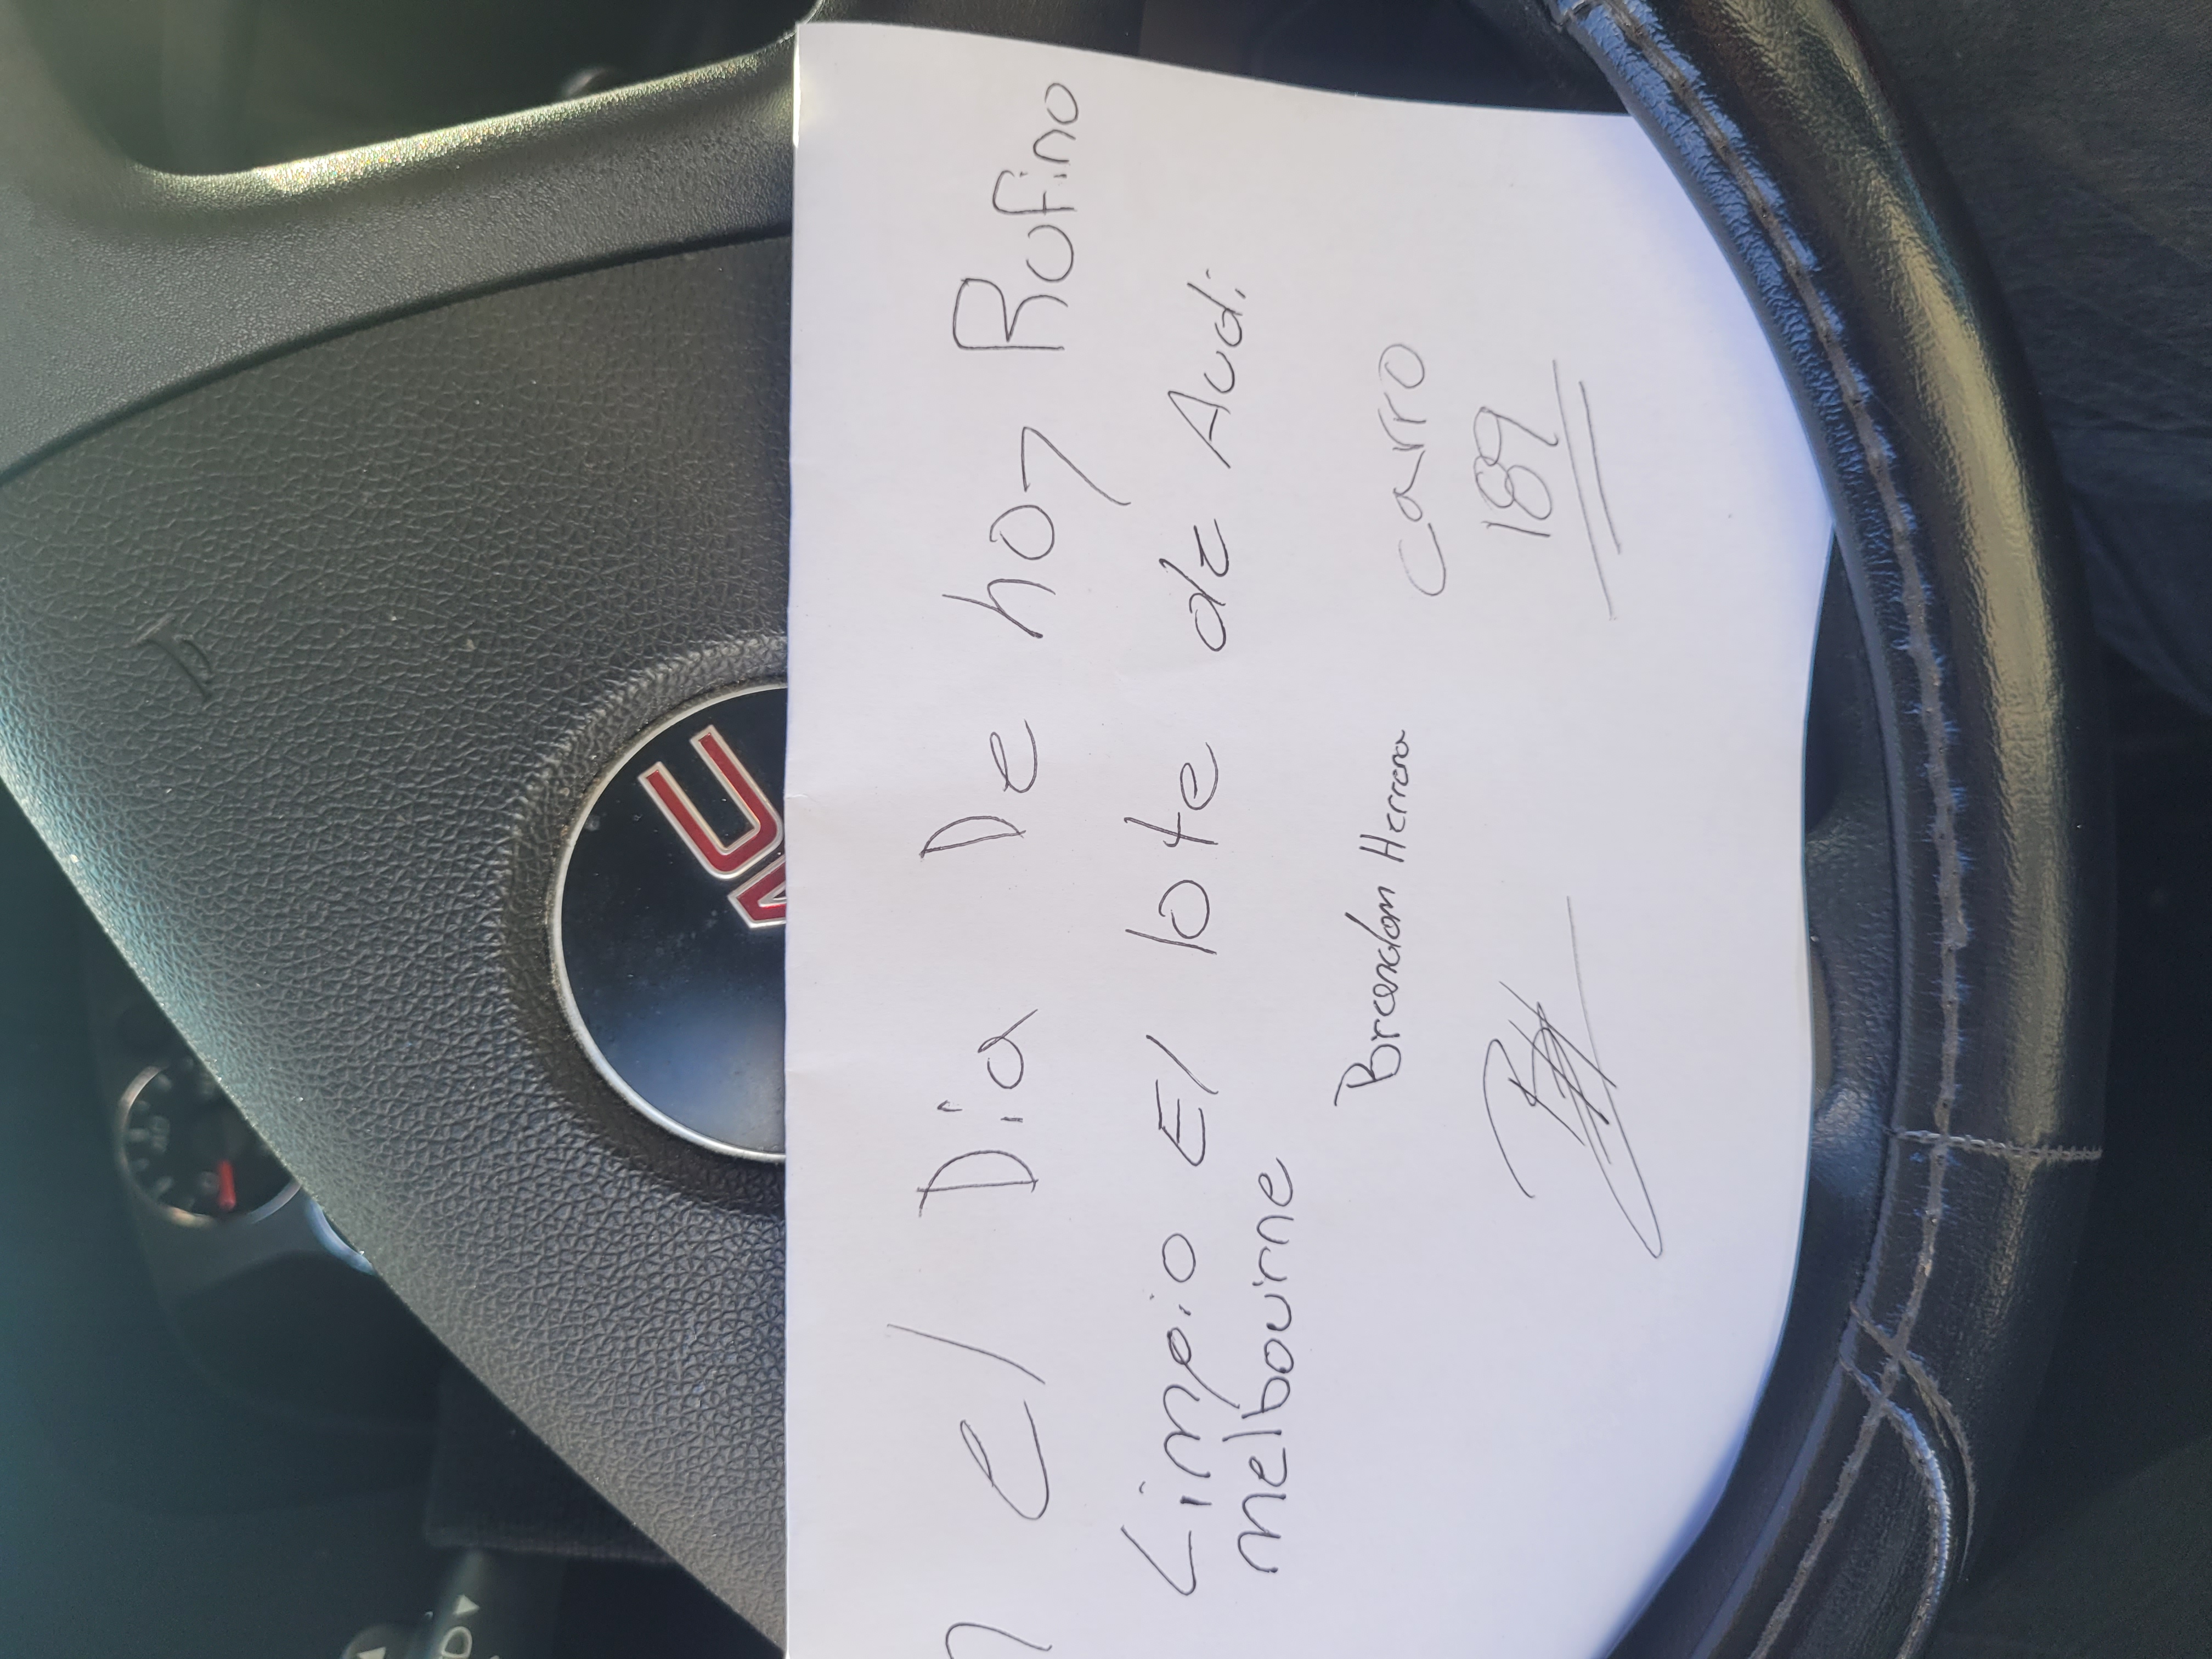 n el Dia De hoy Rufino
Limpio El lote de Audi
melbourne
Brendan Herrera
carro
189